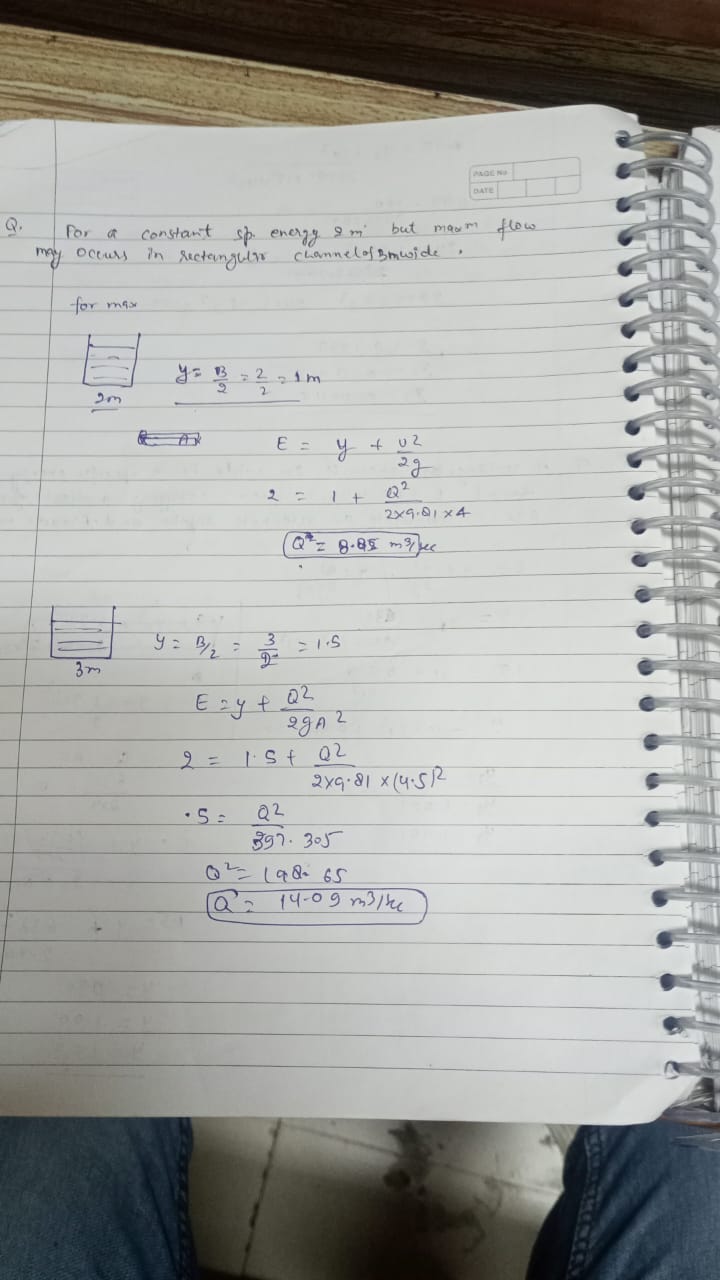 PAGE NO
DATE
Q. For a constant sp. energy 2 m but maxm flow
may occurs in rectangular channel of 3m wide.
for max
2m
y = B/2 = 2/2 = 1 m
E = y + v2/2g
2 = 1 + Q2/2x9.81 x4
Q = 8.85 m3/sec
3m
y = B/2 = 3/2 = 1.5
E = y + Q2/2gA2
2 = 1.5 + Q2/2x9.81 x(4.5)2
.5 = Q2/397.305
Q2 = 198.65
Q = 14.09 m3/sec